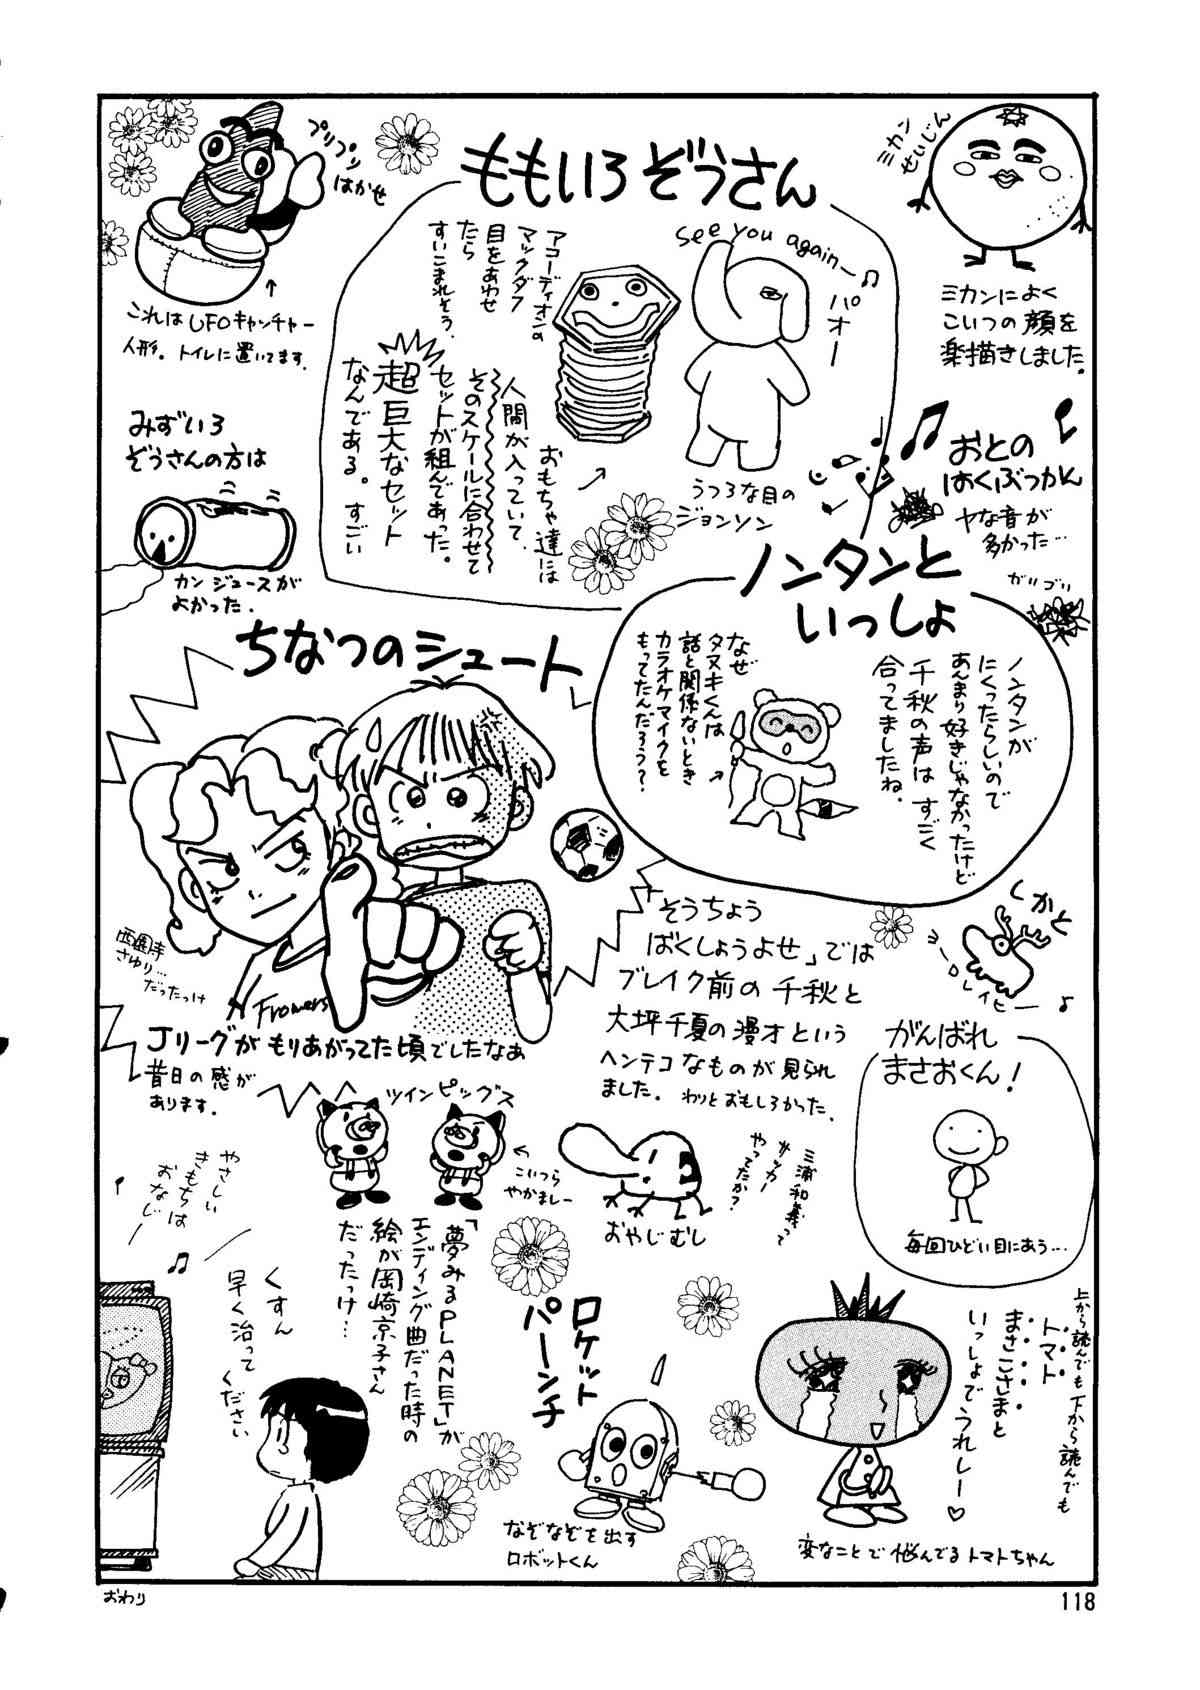 プリプリ
はかせ
これはUFOキャッチャー
人形。トイレに置いてます。
ももいろぞうさん
ミカン
せいじん
ミカンによく
こいつの顔を
楽描きしました。
see you again—♫
パオー
アコーディオンの
マックダフ
目をあわせ
たら
すいこまれそう.
うつろな目の
ジョンソン
おもちゃ達には
人間が入っていて、
そのスケールに合わせて
セットが組んであった。
超巨大なセット
なんである。すごい
みずいろ
ぞうさんの方は
カンジュースが
よかった.
おとの
はくぶつかん
ヤな音が
多かった…
ガリゴリ
ノンタンと
いっしょ
ノンタンが
にくったらしいので
あんまり好きじゃなかったけど
千秋の声はすごく
合ってましたね.
なぜ
タヌキくんは
話と関係ないとき
カラオケマイクを
もってたんだろう?
ちなつのシュート
西園寺
さゆり…
だったっけ
Frowers
Jリーグがもりあがってた頃でしたなぁ
昔日の感が
あります.
「そうちょう
ばくしょうよせ」では
ブレイク前の千秋と
大坪千夏の漫才という
ヘンテコなものが見られ
ました。わりとおもしろかった.
くかと
ヨー
レイヒー♪
がんばれ
まさおくん!
毎回ひどい目にあう…
ツインピッグス
こいつら
やかましー
おやじむし
三浦和義って
サッカー
やってたか?
「夢みるPLANET」が
エンディング曲だった時の
絵が岡崎京子さん
だったっけ…
やさしい
きもちは
おなじー
♫
くすん
早く治って
ください
ロケット
パーンチ
なぞなぞを出す
ロボットくん
上から読んでも下から読んでも
トマト
まさこさまと
いっしょでうれしー♡
変なことで悩んでるトマトちゃん
おわり
118